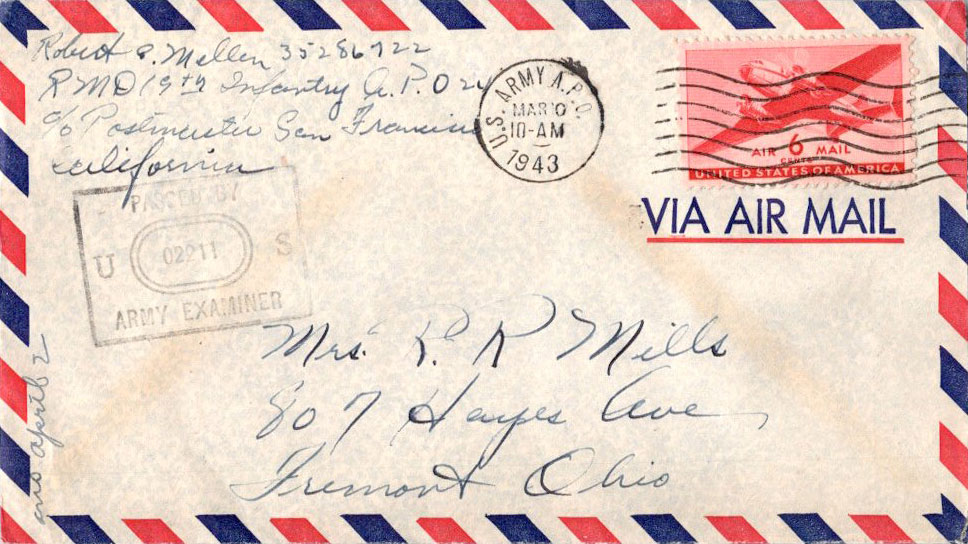 Robert C. Mellen 35286722
RMD 19th Infantry A.P.O 24
c/o Postmaster San Francisco
California
U.S. ARMY A.P.O.
MAR 0
10-AM
1943
AIR 6 MAIL
CENTS
UNITED STATES OF AMERICA
VIA AIR MAIL
PASSED BY
U 02211 S
ARMY EXAMINER
Mrs. R. R Mills
807 Hayes Ave,
Fremont Ohio
april 2